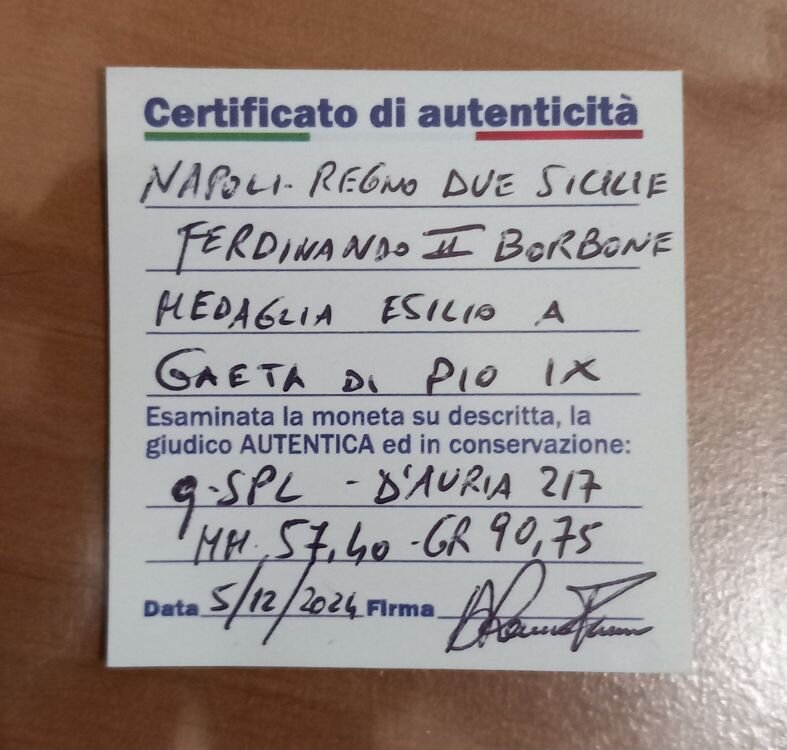 Certificato di autenticità
NAPOLI - REGNO DUE SICILIE
FERDINANDO II BORBONE
MEDAGLIA ESILIO A
GAETA DI PIO IX
Esaminata la moneta su descritta, la
giudico AUTENTICA ed in conservazione:
q-SPL - D'AURIA 217
MM. 57,40 - GR 90,75
Data 5/12/2024 Firma